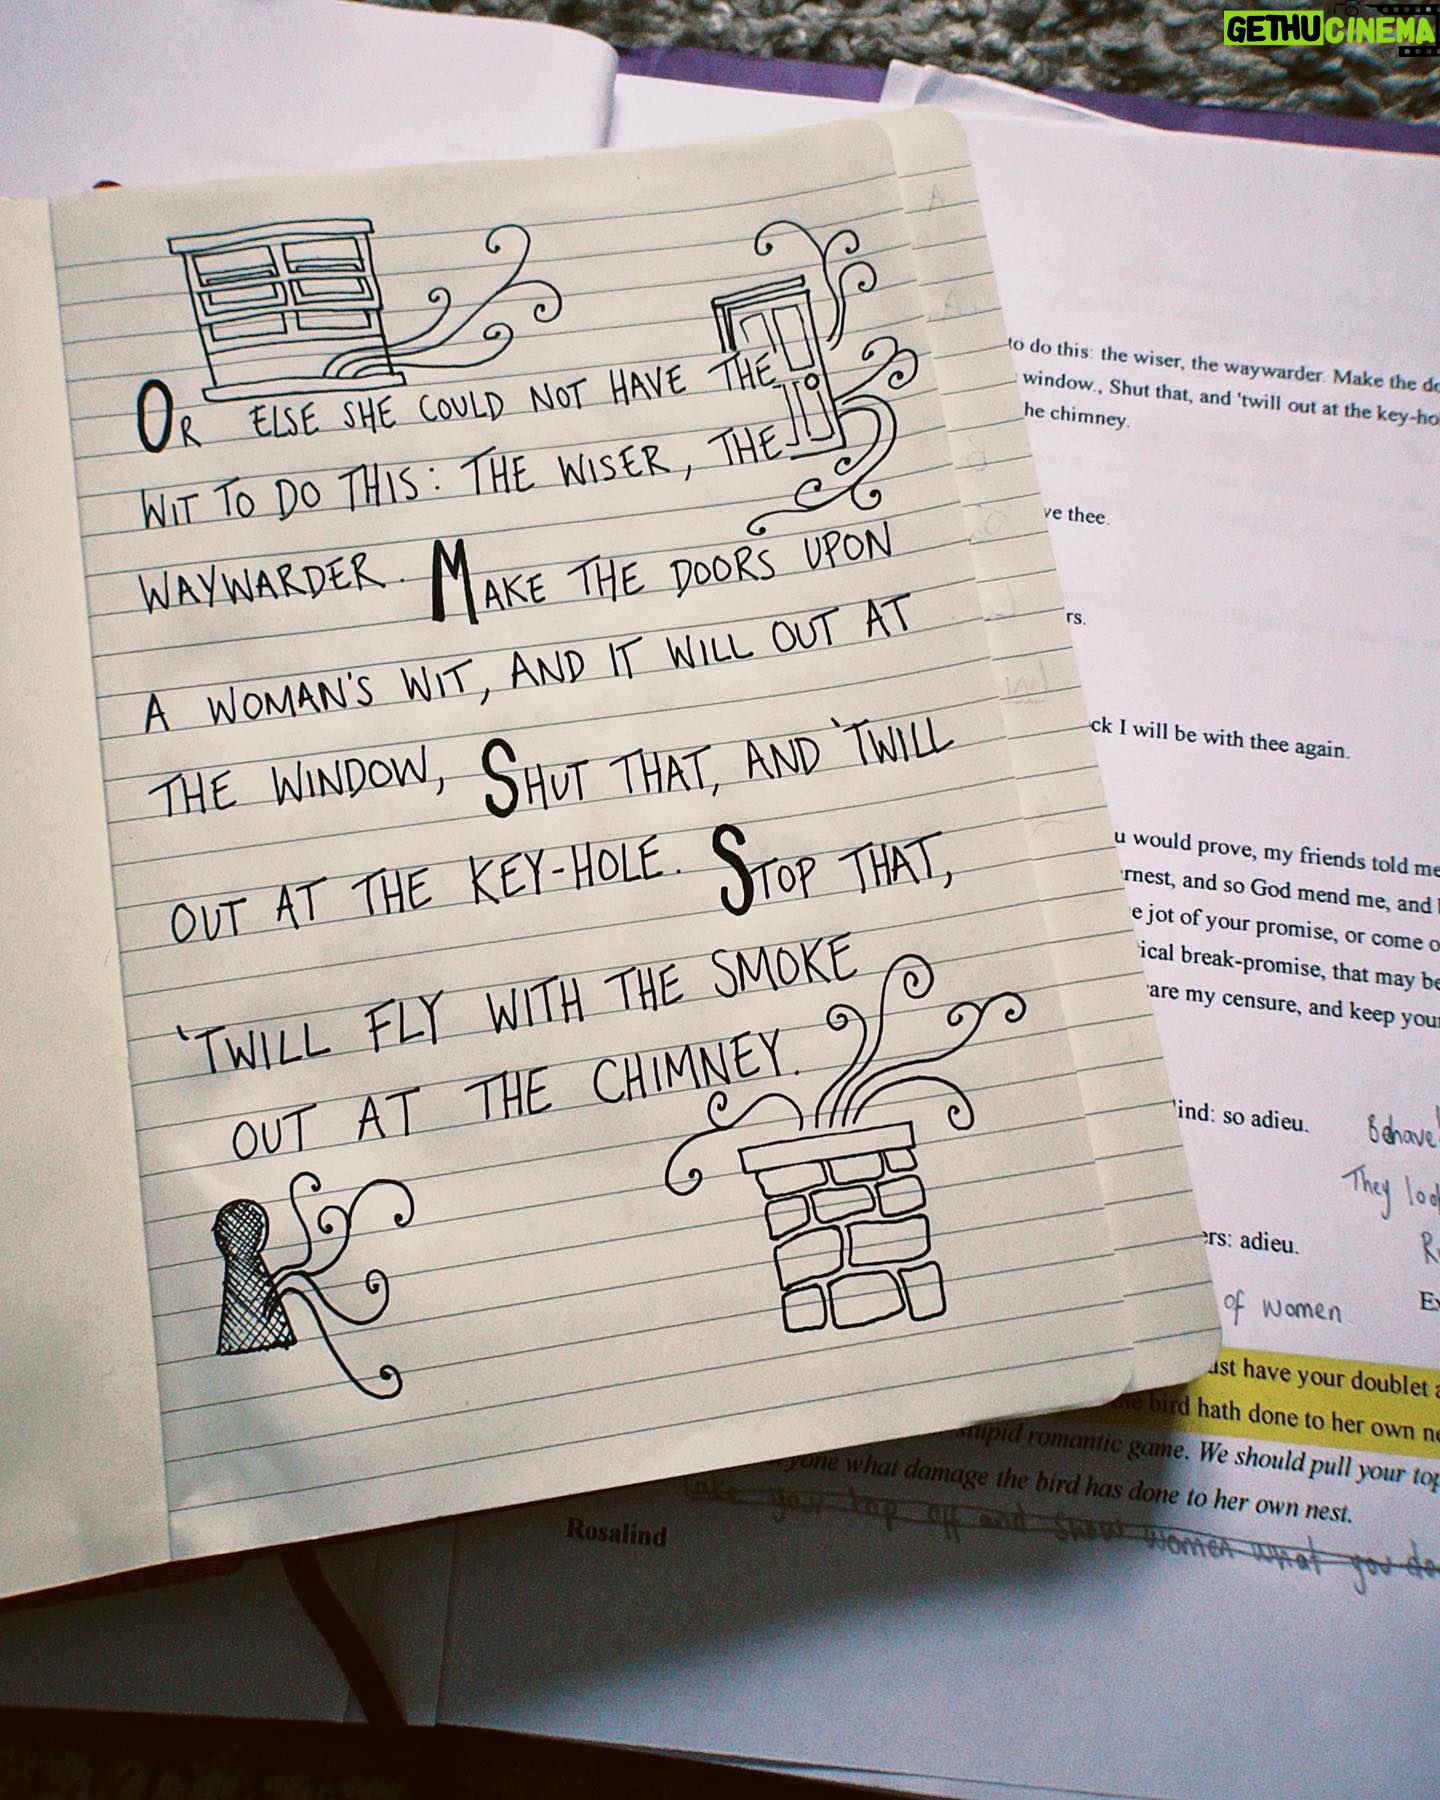 GETHUCINEMA
OR ELSE SHE COULD NOT HAVE THE
WIT TO DO THIS: THE WISER, THE
WAYWARDER. MAKE THE DOORS UPON
A WOMAN'S WIT, AND IT WILL OUT AT
THE WINDOW, SHUT THAT, AND 'TWILL
OUT AT THE KEY-HOLE. STOP THAT,
'TWILL FLY WITH THE SMOKE
OUT AT THE CHIMNEY.
to do this: the wiser, the waywarder. Make the
window., Shut that, and 'twill out at the
he chimney.
ve thee.
rs.
ck I will be with thee again.
u would prove, my friends told me
rnest, and so God mend me, and
e jot of your promise, or come
ical break-promise, that may be
are my censure, and keep your
ind: so adieu.
Behave
They
ers: adieu.
of women
ust have your doublet
bird hath done to her own
stupid romantic game. We should pull your top
what damage the bird has done to her own nest.
your top off and show women what you
Rosalind